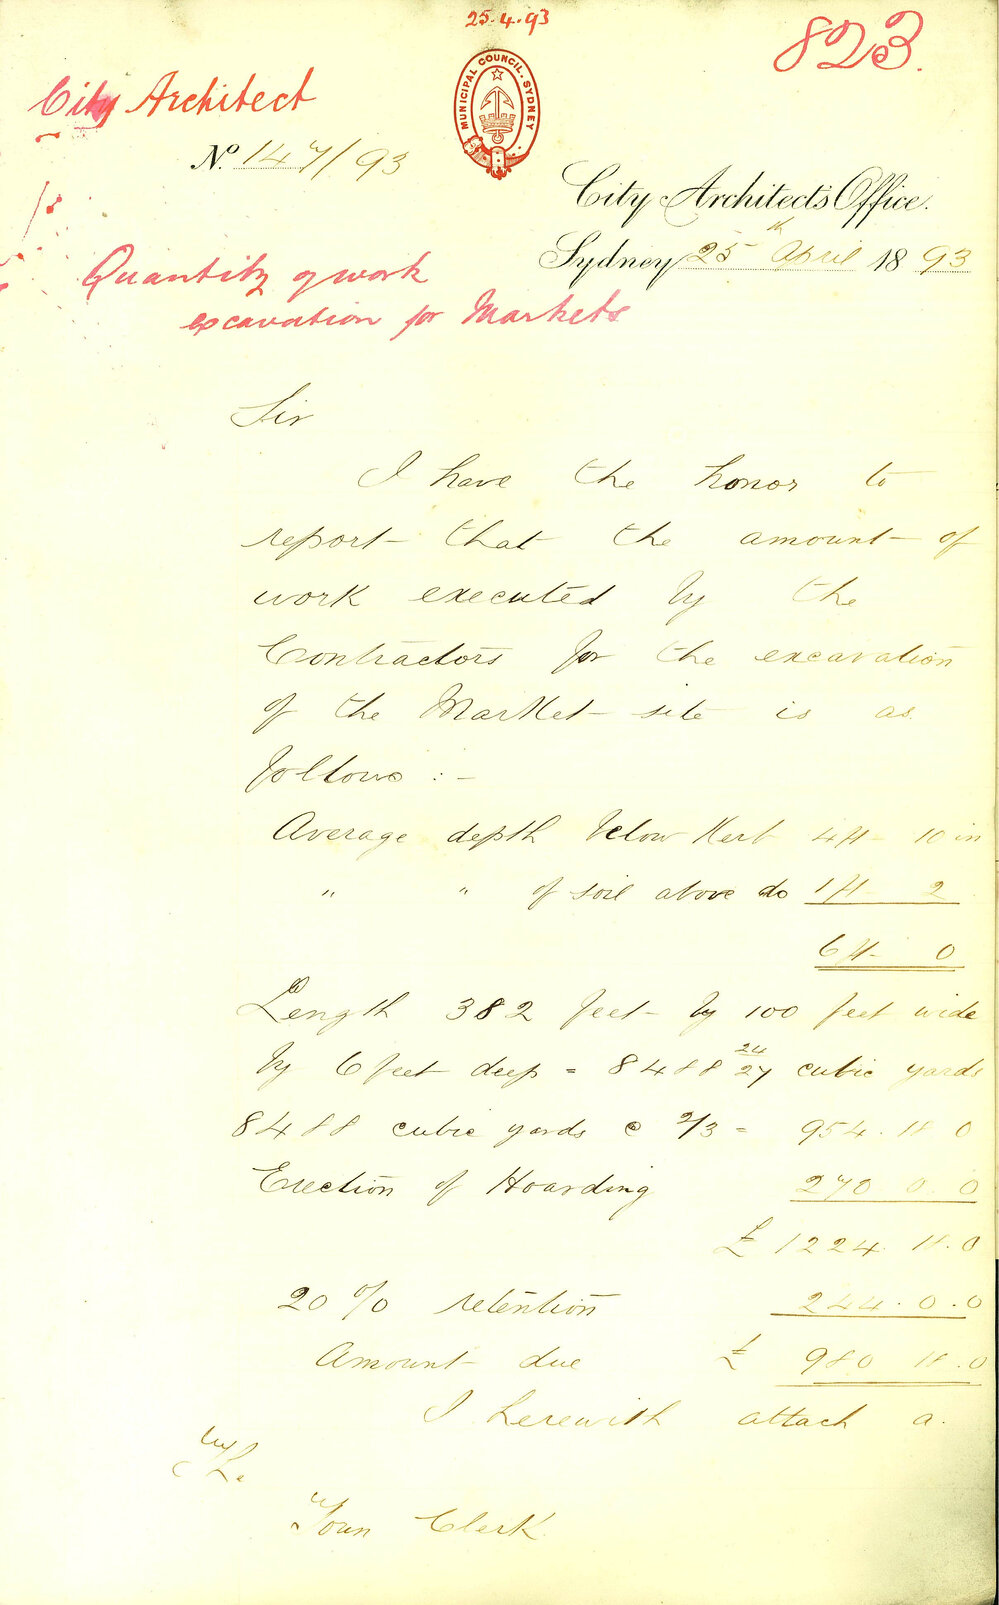 25.4.93
823.
City Architect
MUNICIPAL COUNCIL. SYDNEY
No. 147/93
City Architect's Office.
Sydney 25th April 1893
Quantity of work
excavation for Markets
Sir
I have the honor to
report that the amount of
work executed by the
Contractors for the excavation
of the Market site is as
follows :-
Average depth below Kerb 4ft 10in
" " of soil above do 1ft 2
6ft 0
Length 382 feet by 100 feet wide
by 6 feet deep = 8488 24/27 cubic yards
8488 cubic yards @ 2/3 = 954.18 0
Erection of Hoarding 270 0.0
£ 1224. 18.0
20 % retention 244.0.0
Amount due £ 980 18.0
I herewith attach a
Town Clerk